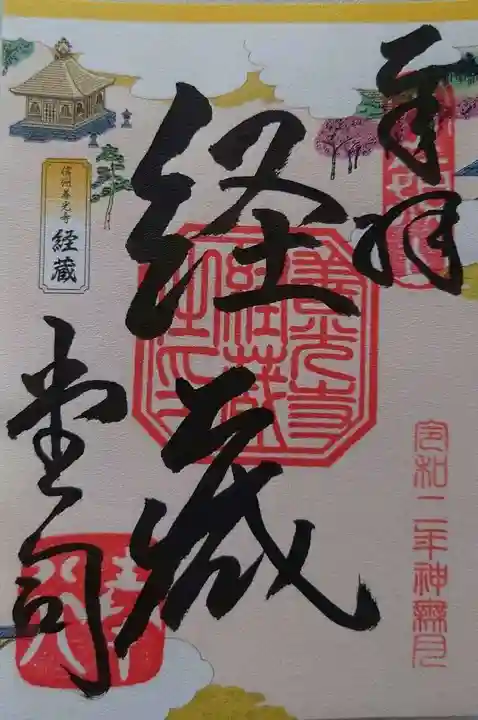 奉拝
令和二年神無月
経蔵
善光寺
経蔵
之印
堂司
信州善光寺
経蔵